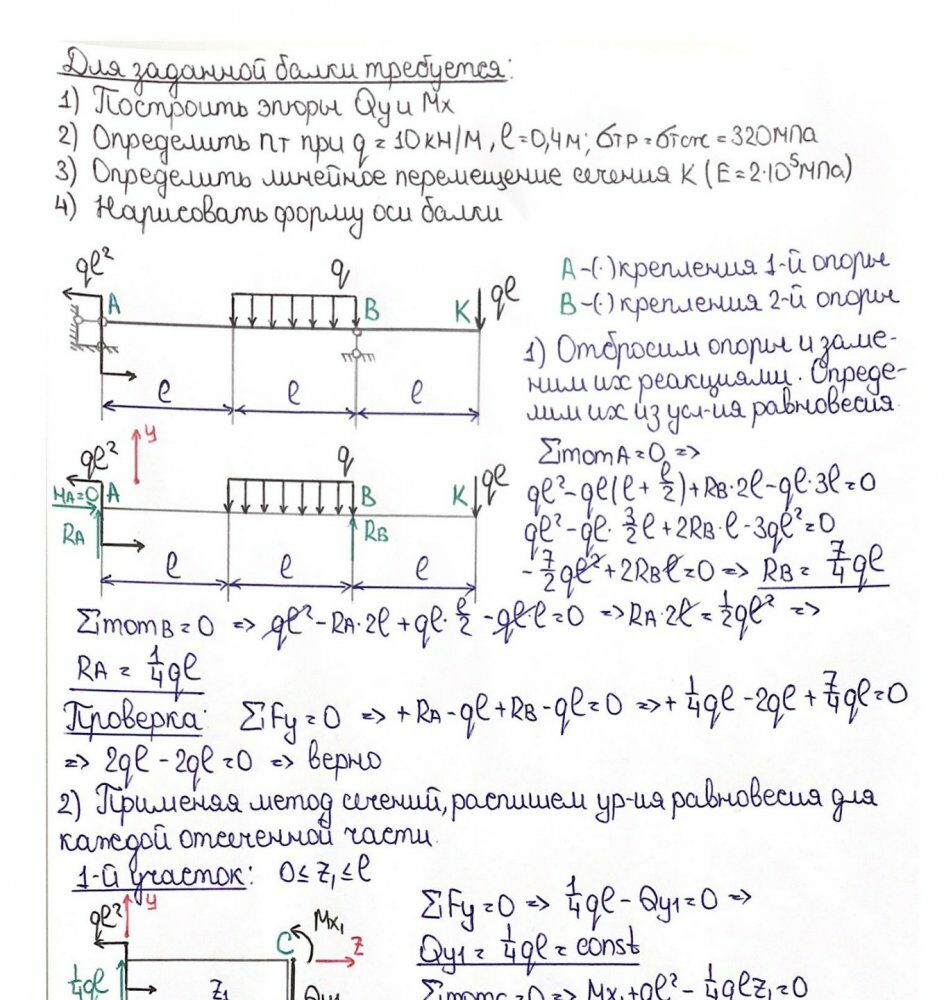 Для заданной балки требуется:
1) Построить эпюры Qy и Mx
2) Определить nт при q = 10 кН/м, l = 0,4 м; σтр = σтсж = 320 МПа
3) Определить линейное перемещение сечения K (E = 2·10⁵ МПа)
4) Нарисовать форму оси балки
ql²
A
q
B
K
ql
l
l
l
A-(·) крепления 1-й опоры
B-(·) крепления 2-й опоры
1) Отбросим опоры и заме-
ним их реакциями. Опреде-
лим их из усл-ия равновесия.
y
ql²
HA=0
A
RA
q
B
RB
K
ql
l
l
l
ΣmomA = 0 =>
ql² - ql(l + l/2) + RB·2l - ql·3l = 0
ql² - ql·3/2 l + 2RB·l - 3ql² = 0
-7/2 ql² + 2RBl = 0 => RB = 7/4 ql
ΣmomB = 0 => ql² - RA·2l + ql·l/2 - ql·l = 0 => RA·2l = 1/2 ql² =>
RA = 1/4 ql
Проверка: ΣFy = 0 => +RA - ql + RB - ql = 0 => + 1/4 ql - 2ql + 7/4 ql = 0
=> 2ql - 2ql = 0 => верно
2) Применяя метод сечений, распишем ур-ия равновесия для
каждой отсеченной части.
1-й участок: 0 ≤ z₁ ≤ l
ql²
y
1/4 ql
z₁
C
Mx₁
z
Qy₁
ΣFy = 0 => 1/4 ql - Qy1 = 0 =>
Qy1 = 1/4 ql = const
ΣmomC = 0 => Mx₁ + ql² - 1/4 qlz₁ = 0